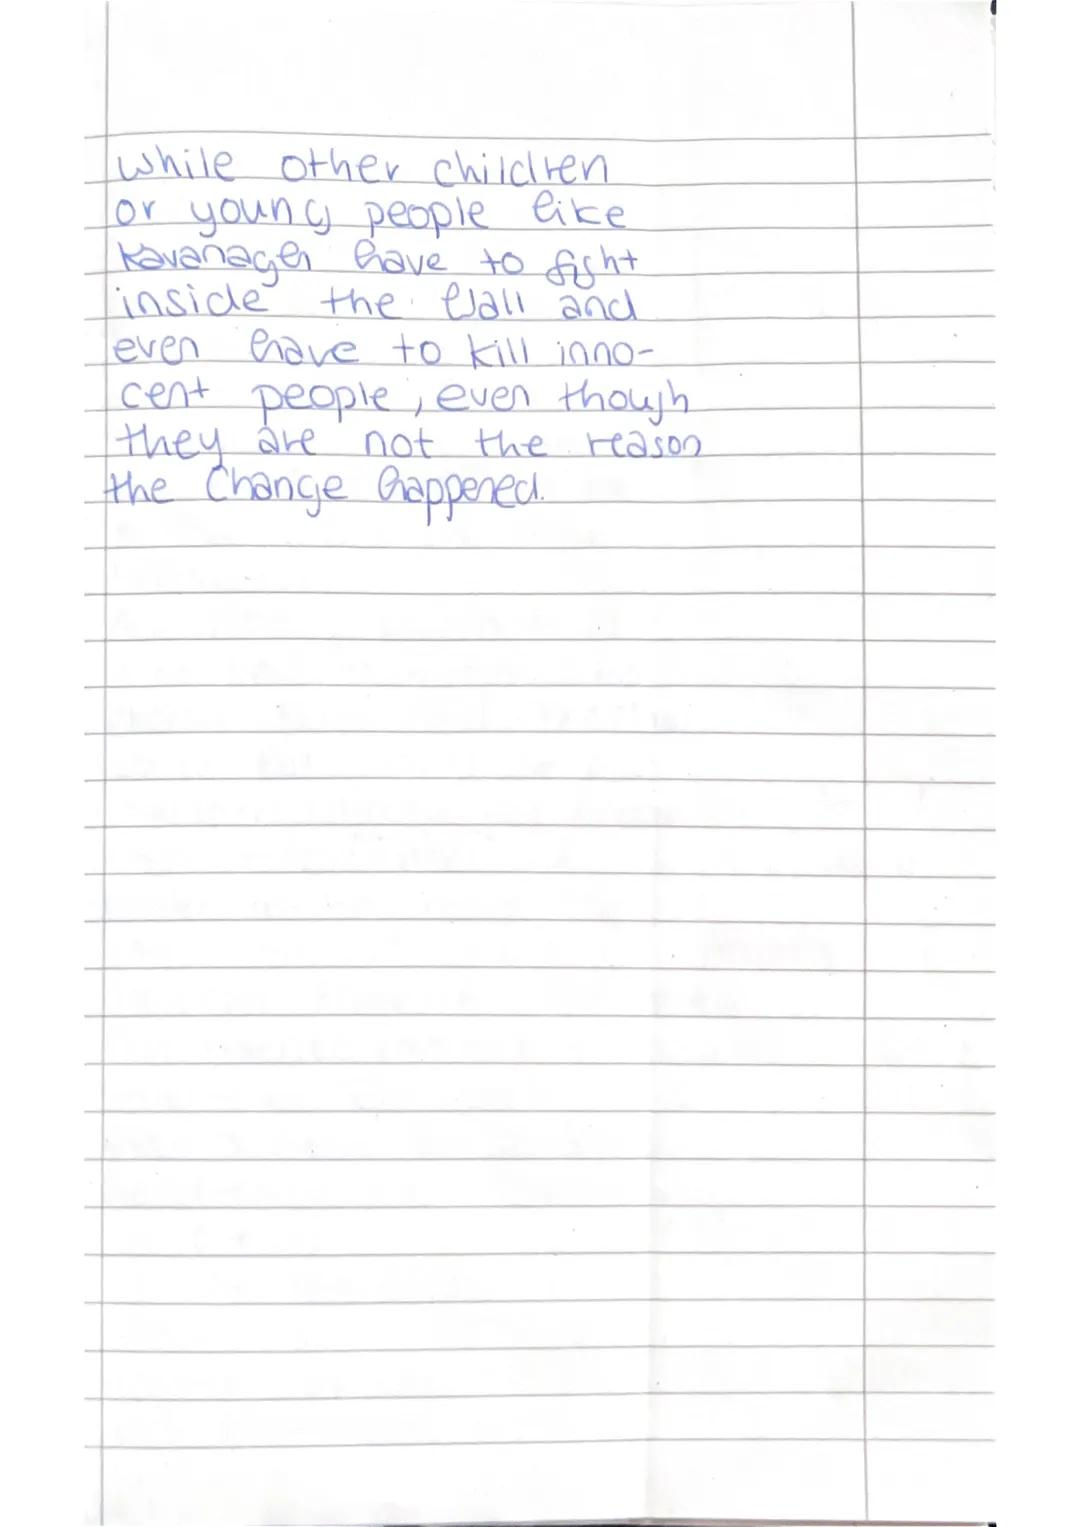 while other children
or young people like
Kavanager have to fight
inside the Wall and
even have to kill inno-
cent people, even though
they are not the reason
the Change happened.